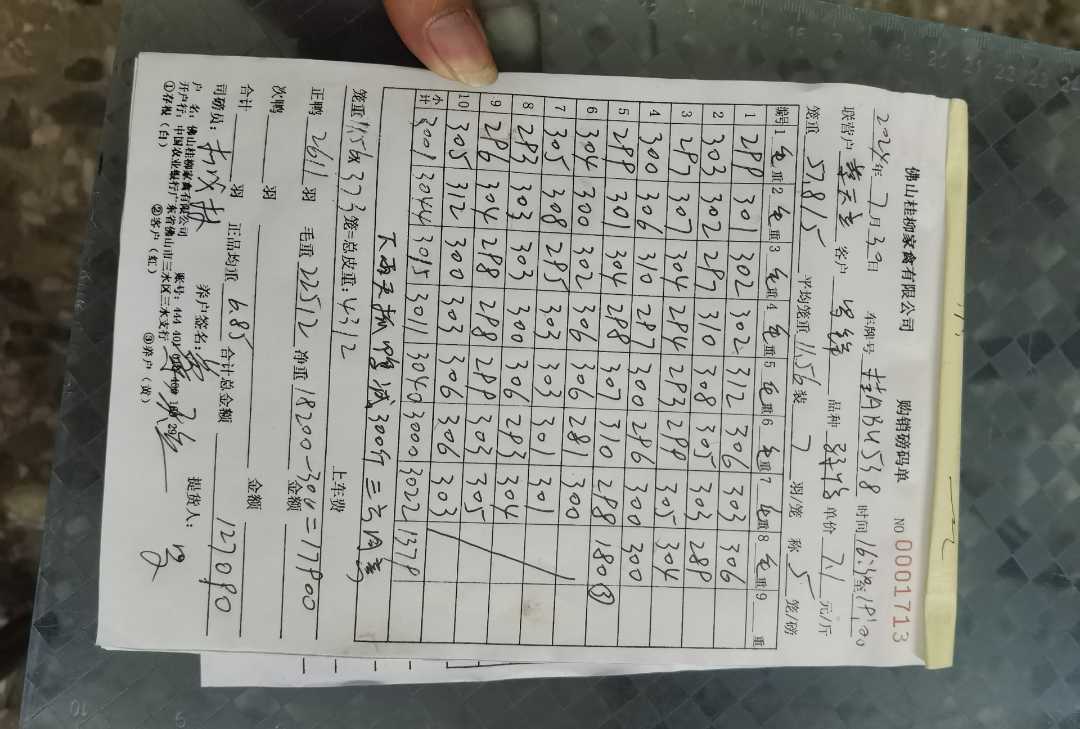 佛山桂柳家禽有限公司 购销磅码单 NO.0001713
2024年7月30日 车牌号 桂ABU538 时间 16:38至18:20
联营户 客户 品种 单价 7.1 元/斤
笼重 5781.5 平均笼重 11.56 装 7 羽/笼 称 5 笼/磅
编号 1 毛重 2 毛重 3 毛重 4 毛重 5 毛重 6 毛重 7 毛重 8 毛重 9 重
1 299 301 302 302 312 306 303 306
2 303 302 297 310 308 305 303 289
3 297 307 304 294 293 299 305 304
4 300 306 310 297 300 296 300 300
5 299 301 304 298 307 310 298 180③
6 304 300 302 306 306 281 300
7 305 308 295 303 303 301 301
8 293 303 303 300 306 293 304
9 296 304 298 298 299 303 305
10 305 312 300 303 306 306 303
小计 3001 3044 3015 3011 3040 3000 3022 1379
下雨天 减300斤
笼重11.56x373笼=总皮重:4312 上车费
正鸭 2611 羽 毛重 22512 净重 18200-300=17900
次鸭 羽 金额
合计 羽 正品均重 6.85 合计总金额 金额 127090
司磅员: 养户签名: 提货人:
户 名:佛山桂柳家禽有限公司 账号:
开户行:中国农业银行广东省佛山市三水区三水支行
①存根(白) ②客户(红) ③养户(黄)